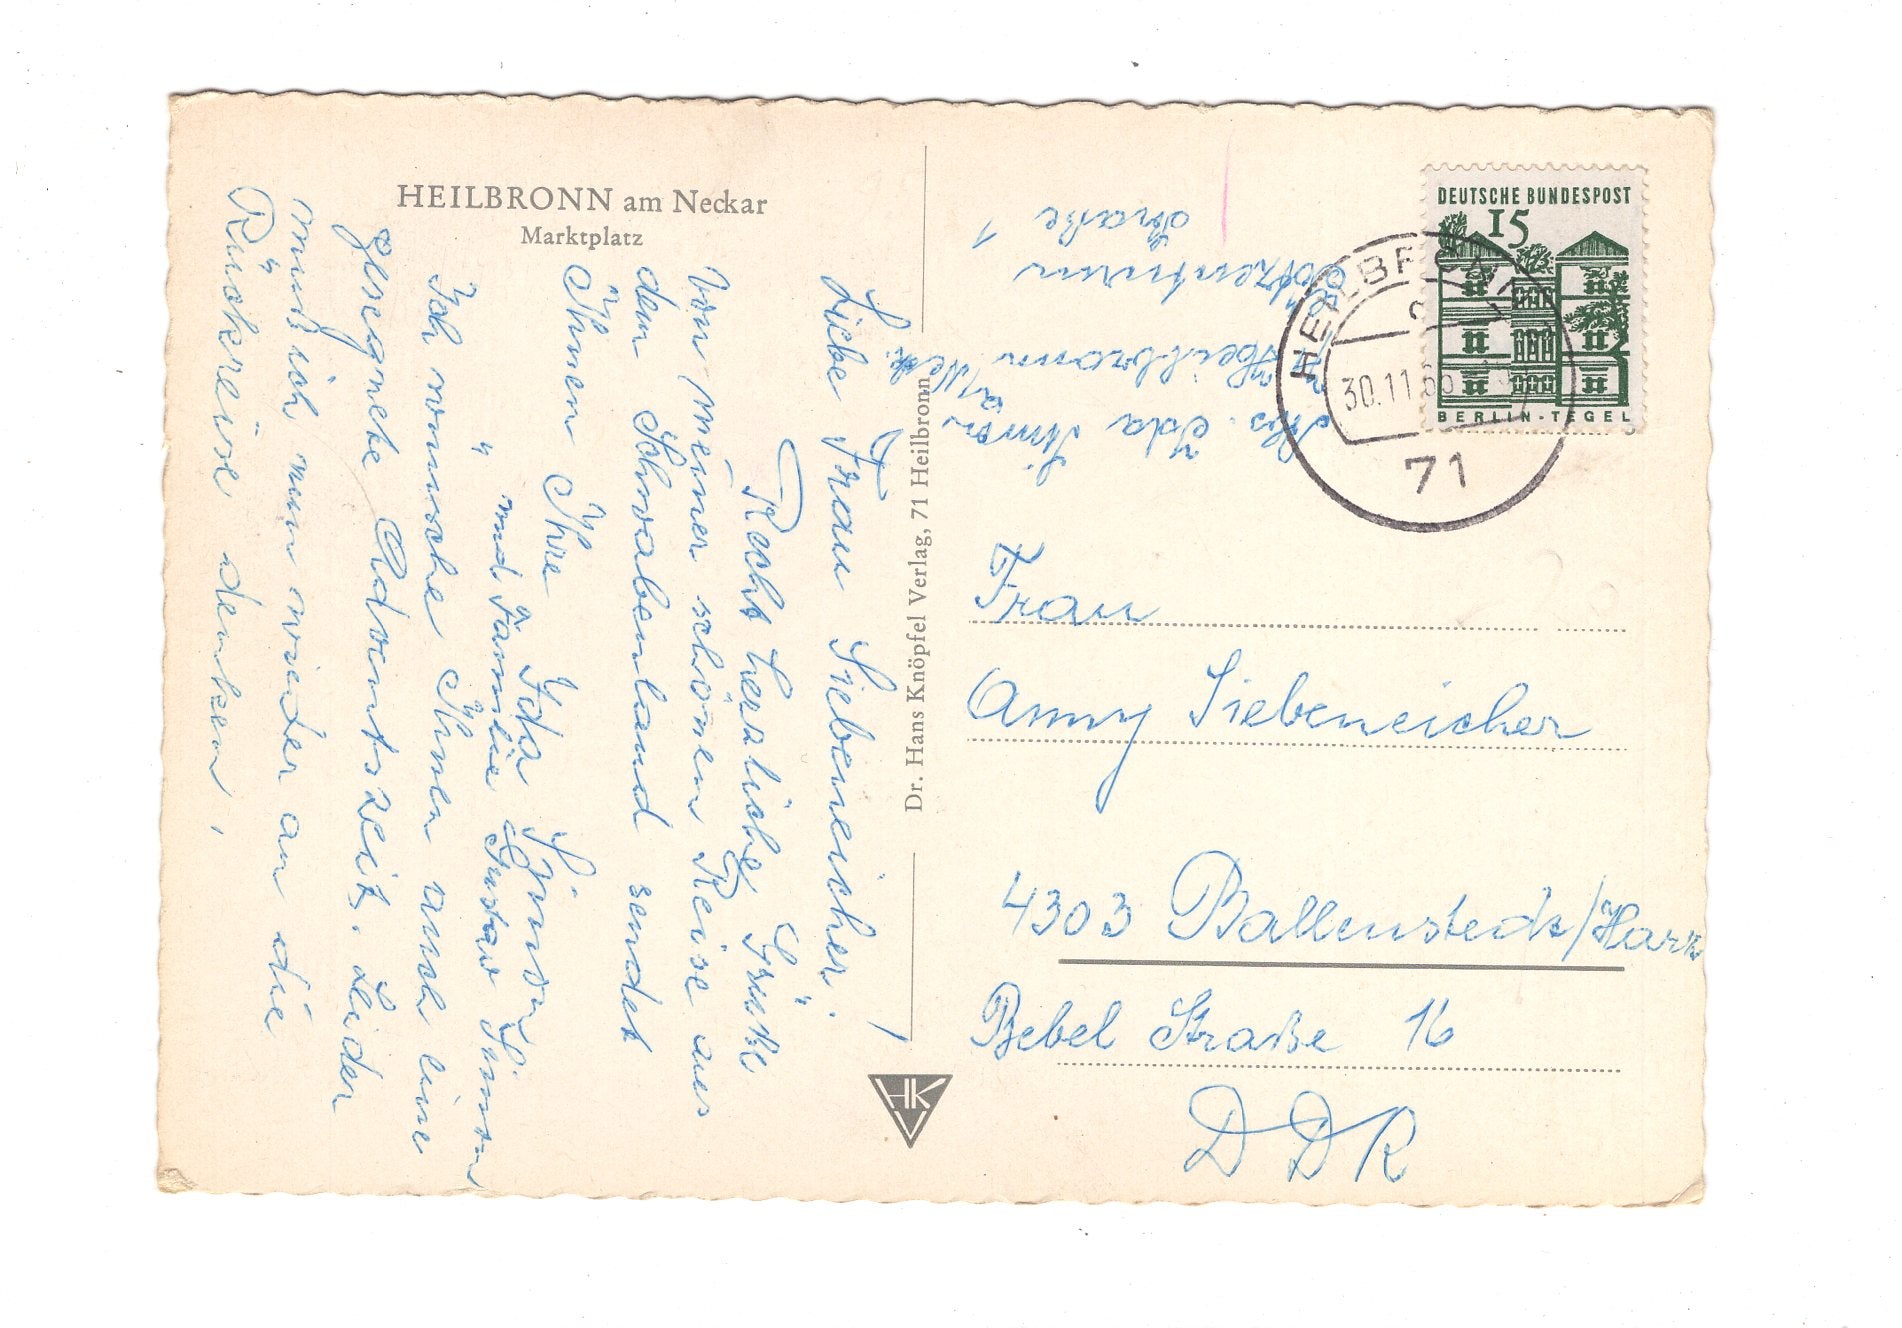 HEILBRONN am Neckar
Marktplatz
Liebe Frau Siebeneicher.
Recht herzliche Grüße
von meiner schönen Reise aus
dem Schwabenland sendet
Ihnen Ihre
Ida Simon
und Familie Gustav Simon
Ich wünsche Ihnen auch eine
gesegnete Adventszeit. Leider
muß ich nun wieder an die
Rückreise denken.
Dr. Hans Knöpfel Verlag, 71 Heilbronn
HKV
Abs. Ida Simon
Heilbronn a/Neck.
Straße 1
DEUTSCHE BUNDESPOST
15
BERLIN-TEGEL
HEILBRONN
30.11.66
71
Frau
Anny Siebeneicher
4303 Ballenstedt/Harz
Bebel Straße 16
DDR